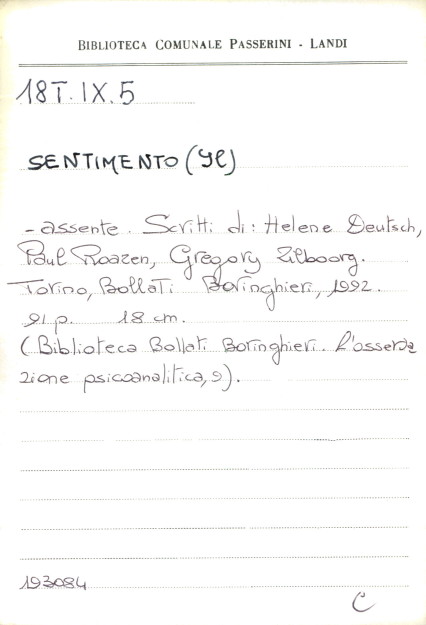 BIBLIOTECA COMUNALE PASSERINI - LANDI
18T.IX.5
SENTIMENTO (Il)
- assente. Scritti di: Helene Deutsch,
Paul Roazen, Gregory Zilboorg.
Torino, Bollati Boringhieri, 1992.
91 p. 18 cm.
(Biblioteca Bollati Boringhieri. L'osserva
zione psicoanalitica, 9).
193084
C